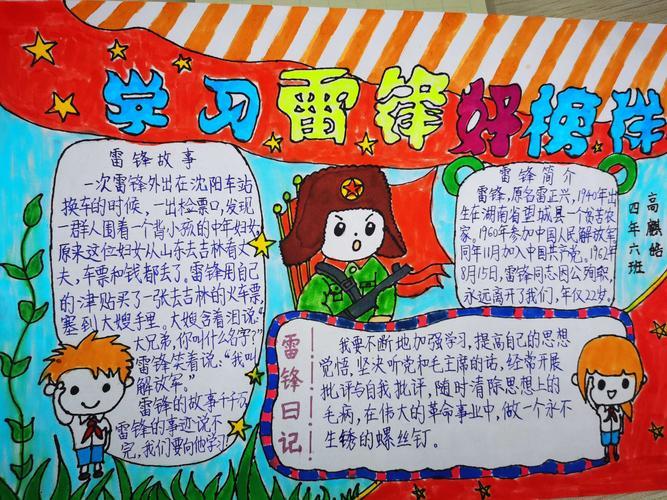 学习雷锋好榜样
雷锋故事
一次雷锋外出在沈阳车站
换车的时候，一出检票口，发现
一群人围着一个背小孩的中年妇女，
原来这位妇女从山东去吉林看丈
夫，车票和钱都丢了。雷锋用自己
的津贴买了一张去吉林的火车票，
塞到大嫂手里。大嫂含着泪说：“
大兄弟，你叫什么名字？”
雷锋笑着说：“我叫
解放军”
雷锋的故事千千万
雷锋的事迹说不
完，我们要向他学习
雷锋简介
雷锋，原名雷正兴，1940年出
生在湖南省望城县一个贫苦农
家。1960年参加中国人民解放军
同年11月加入中国共产党。1962年
8月15日，雷锋同志因公殉职，
永远离开了我们，年仅22岁。
高麒皓
四年六班
雷锋日记
我要不断地加强学习，提高自己的思想
觉悟，坚决听党和毛主席的话，经常开展
批评与自我批评，随时清除思想上的
毛病，在伟大的革命事业中，做一个永不
生锈的螺丝钉。